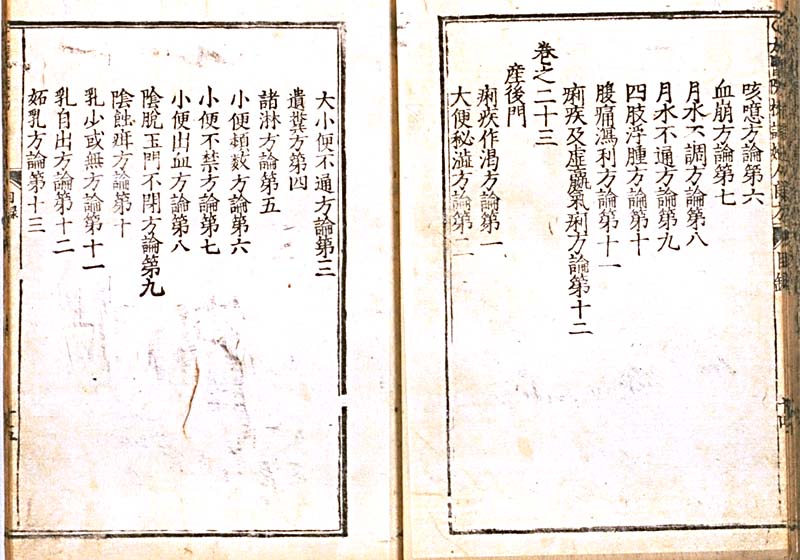 咳噫方論第六
血崩方論第七
月水不調方論第八
月水不通方論第九
四肢浮腫方論第十
腹痛瀉利方論第十一
痢疾及虛羸氣痢方論第十二
卷之二十三
産後門
痢疾作渴方論第一
大便秘澁方論第二
大小便不通方論第三
遺糞方第四
諸淋方論第五
小便頻數方論第六
小便不禁方論第七
小便出血方論第八
陰脫玉門不閉方論第九
陰蝕𤵜方論第十
乳少或無方論第十一
乳自出方論第十二
妬乳方論第十三
目錄